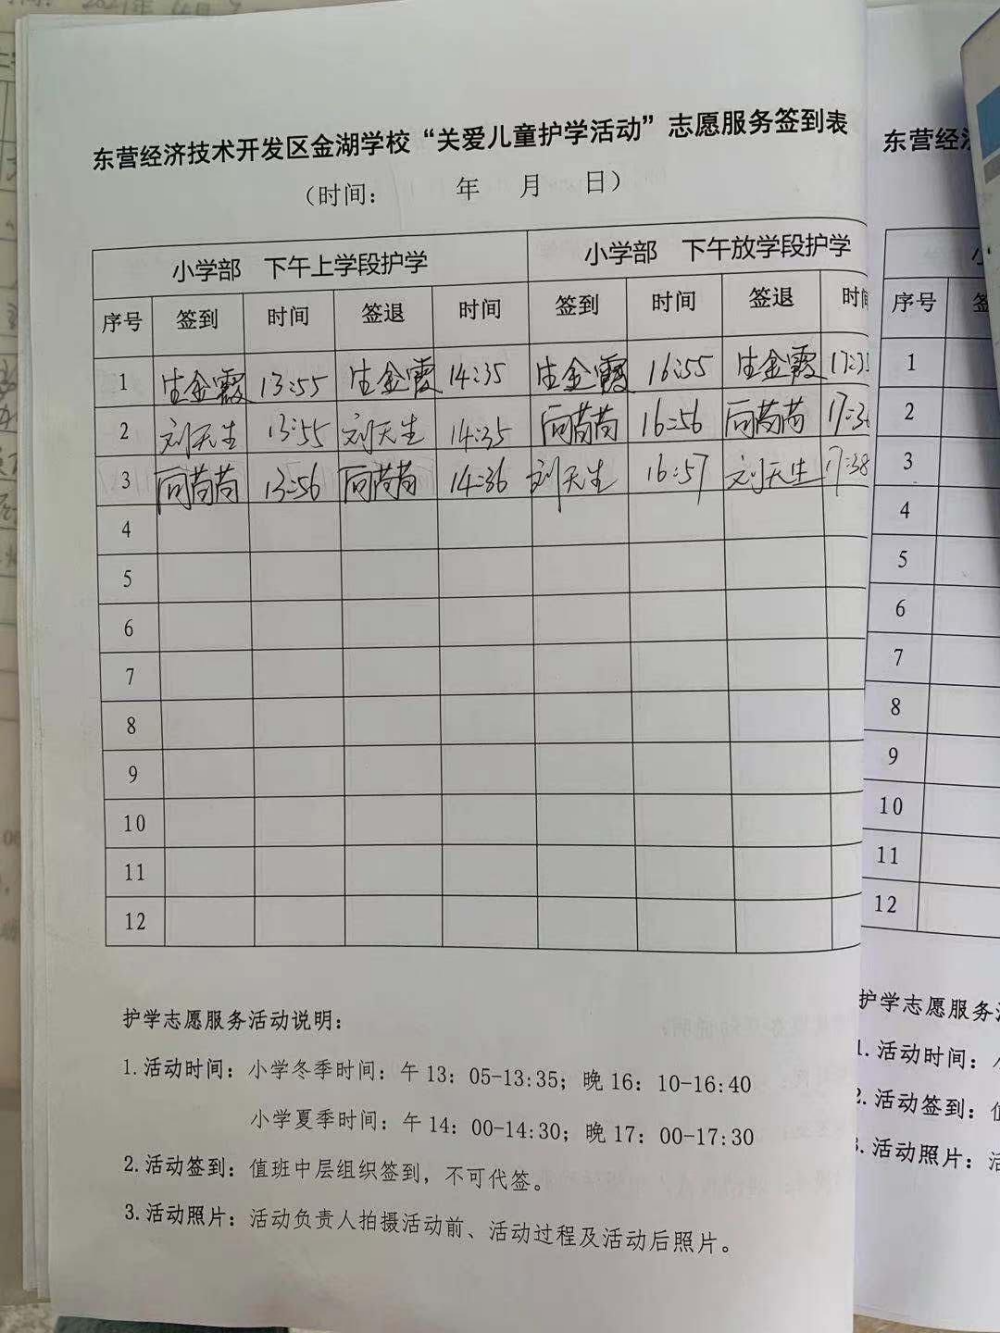 东营经济技术开发区金湖学校“关爱儿童护学活动”志愿服务签到表
东营经济
（时间： 年 月 日）
小学部 下午上学段护学 小学部 下午放学段护学
序号 签到 时间 签退 时间 签到 时间 签退 时间 序号
1 生金霞 13:55 生金霞 14:35 生金霞 16:55 生金霞 1
2 刘天生 13:55 刘天生 14:35 闫苘苘 16:56 闫苘苘 2
3 闫苘苘 13:56 闫苘苘 14:36 刘天生 16:57 刘天生 17:38 3
4 4
5 5
6 6
7 7
8 8
9 9
10 10
11 11
12 12
护学志愿服务活动说明：
1.活动时间：小学冬季时间：午13：05-13:35；晚16：10-16:40
小学夏季时间：午14：00-14:30；晚17：00-17:30
2.活动签到：值班中层组织签到，不可代签。
3.活动照片：活动负责人拍摄活动前、活动过程及活动后照片。
护学志愿服务
1.活动时间：
2.活动签到：
3.活动照片：